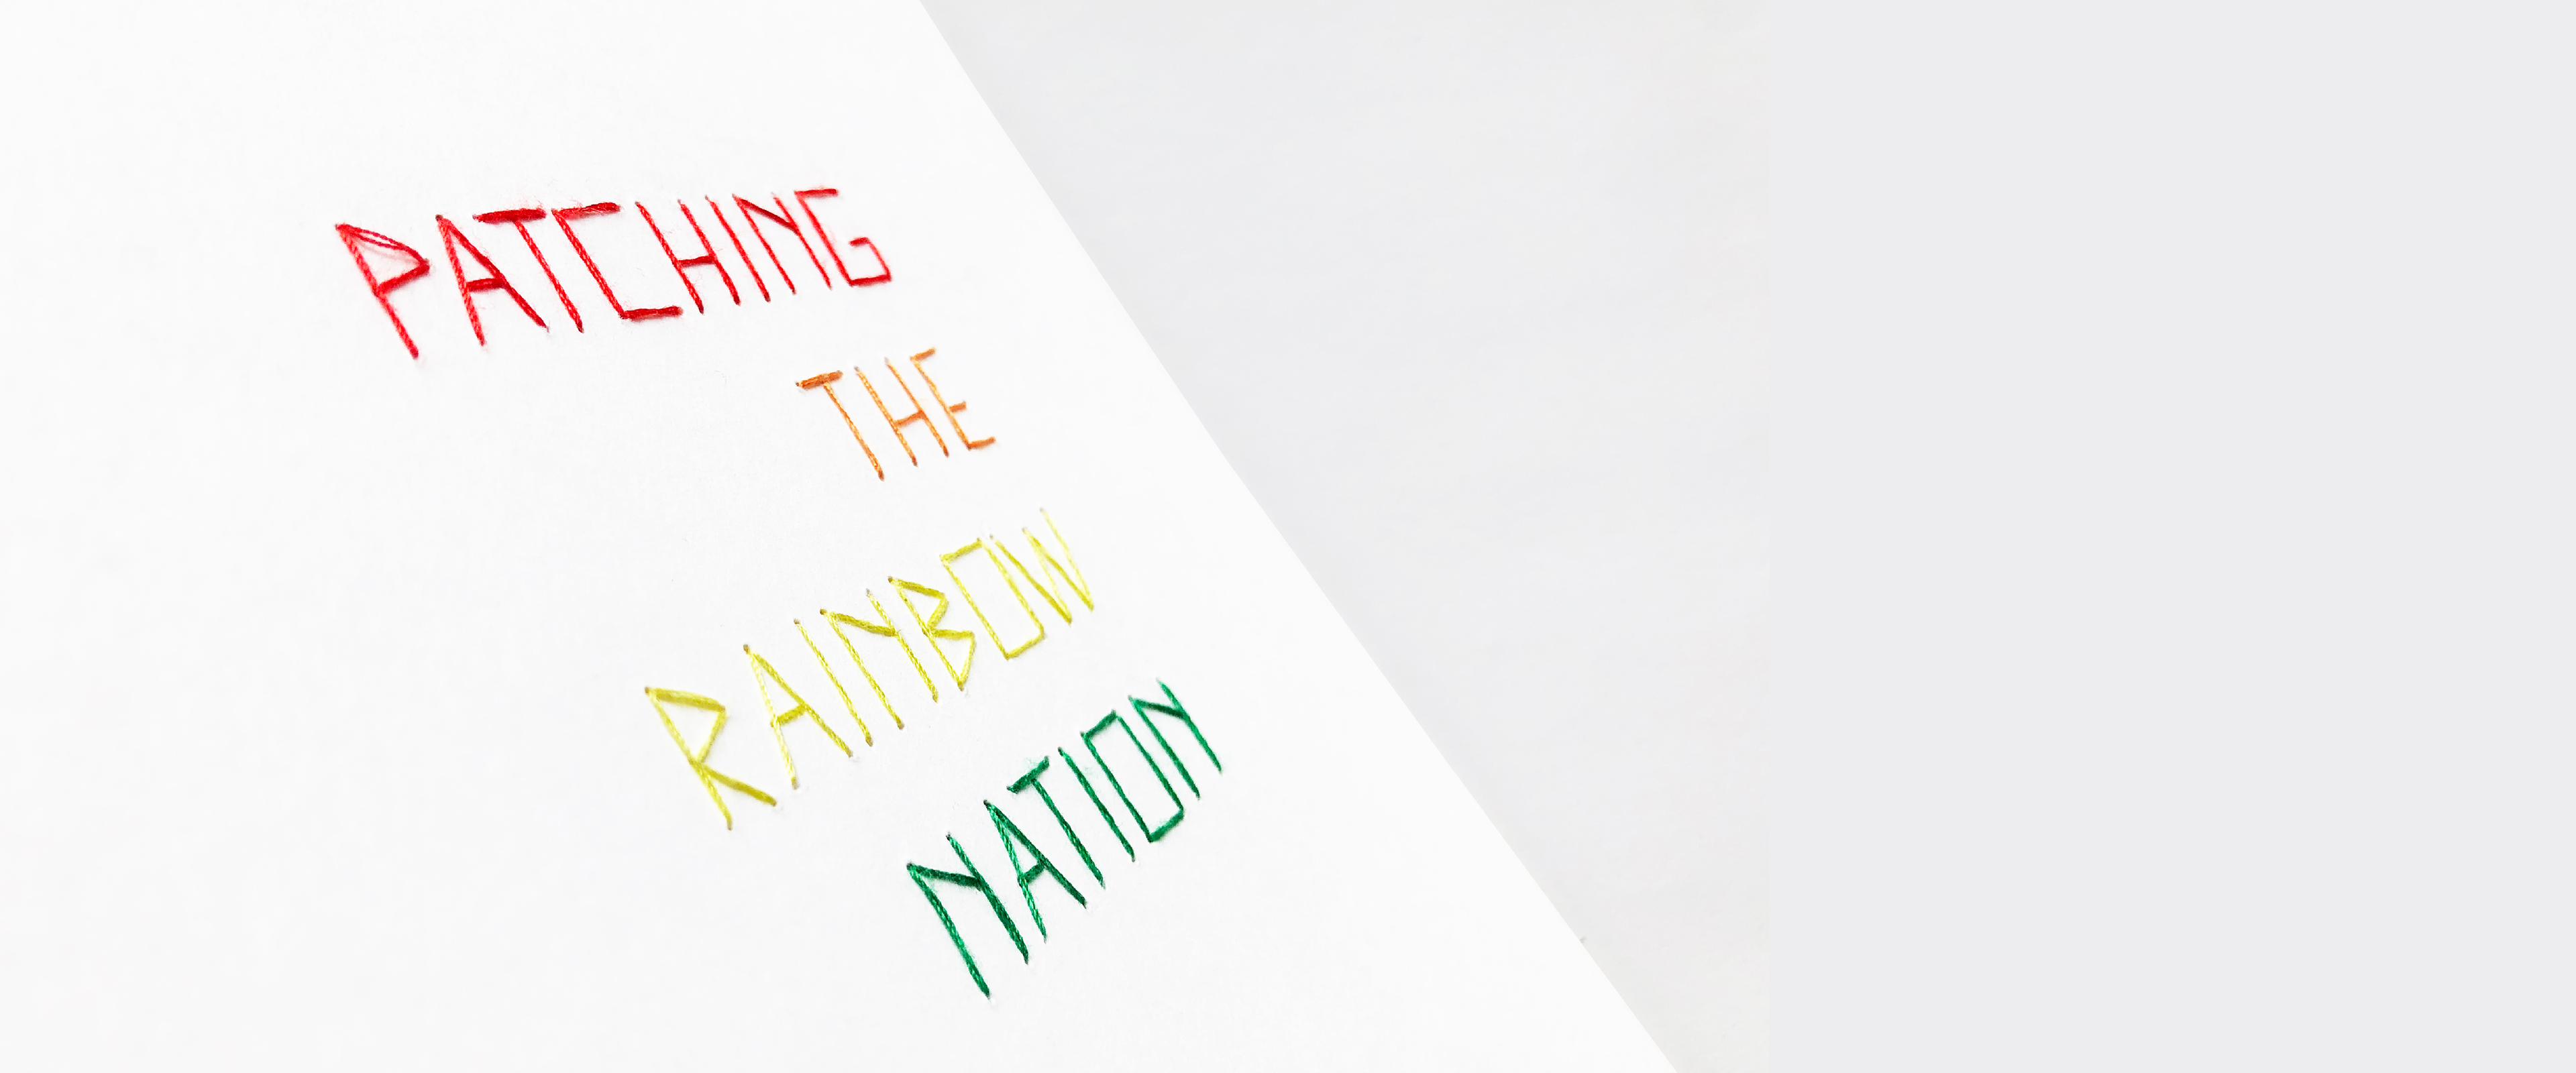 PATCHING
THE
RAINBOW
NATION